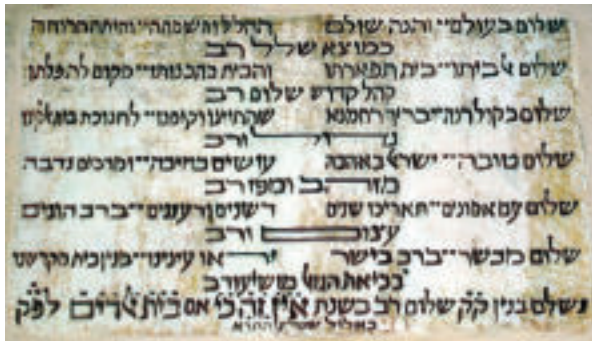 שלום בעולם והנה שולם ההלל והשמחה והיתה הרוחה
כמוצא שלל רב
שלום ביתו בית תפארתו והבית בהבנותו מקום לתפלתו
קהל קדוש שלום רב
שלום בקול רנה בריך רחמנא שהחיינו וקיימנו לחנוכת
ורב
שלום ישראל באהבה עושים בחיבה ומרבים נדבה
מזהב ומפז רב
שלום עם אמונים תאריכו שנים דשנים ורעננים ברב הונים
ורב
שלום מבשר ברב בישר יראו עינינו בנין בית מקדשנו
בביאת הגואל מושיע ורב
נשלם בנין ק״ק שלום רב בשנת אין זה כי אם בית לפק